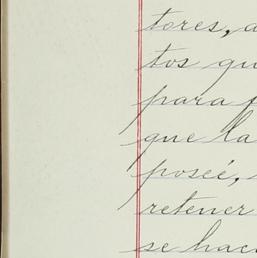 tores, a
tos qu
para p
que la
poseé,
retener
se hac